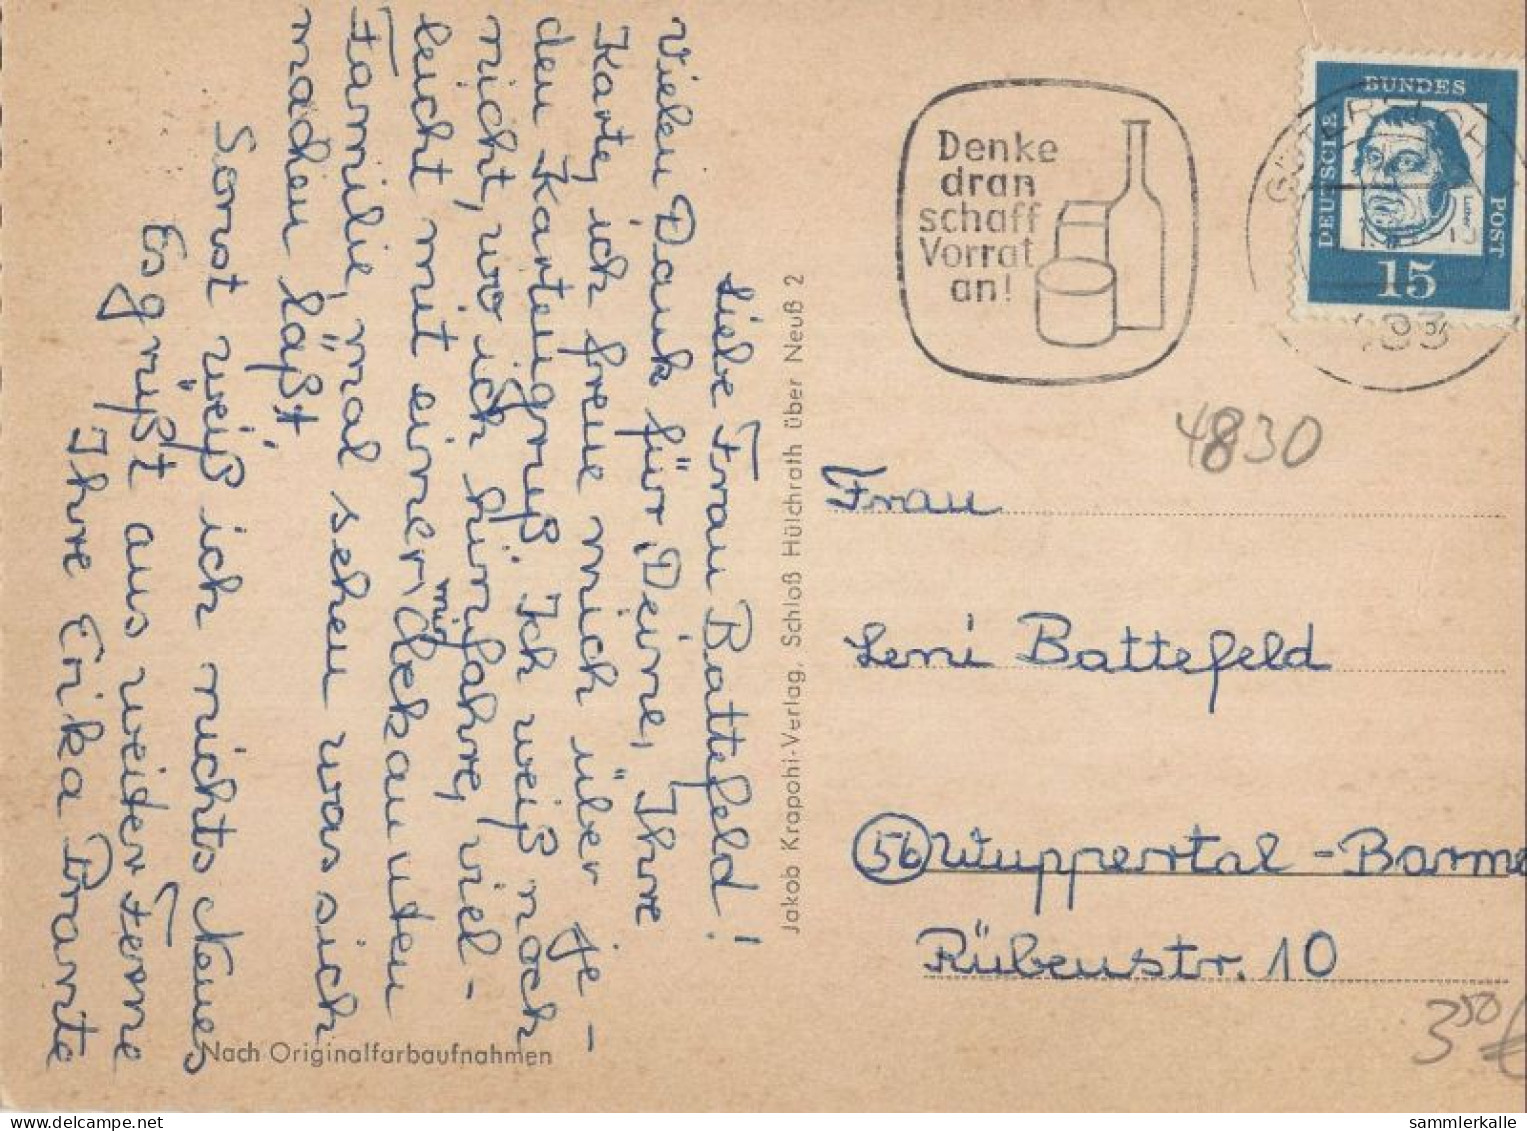 Liebe Frau Battefeld!
Vielen Dank für Deine, Ihre
Karte, ich freue mich über je-
den Kartengruß. Ich weiß noch
nicht, wo ich hinfahre, viel-
leicht mit einer mir bekannten
Familie, mal sehen was sich
machen läßt.
Sonst weiß ich nichts Neues
Es grüßt aus weiter Ferne
Ihre Erika
Nach Originalfarbaufnahmen
Jakob Krapohl-Verlag, Schloß Hülchrath über Neuß 2
Denke
dran
schaff
Vorrat
an!
GÜTERSLOH
483
DEUTSCHE
BUNDES
POST
Luther
15
4830
Frau
Leni Battefeld
56 Wuppertal-Barme
Rübenstr. 10
350 €
sammlerkalle